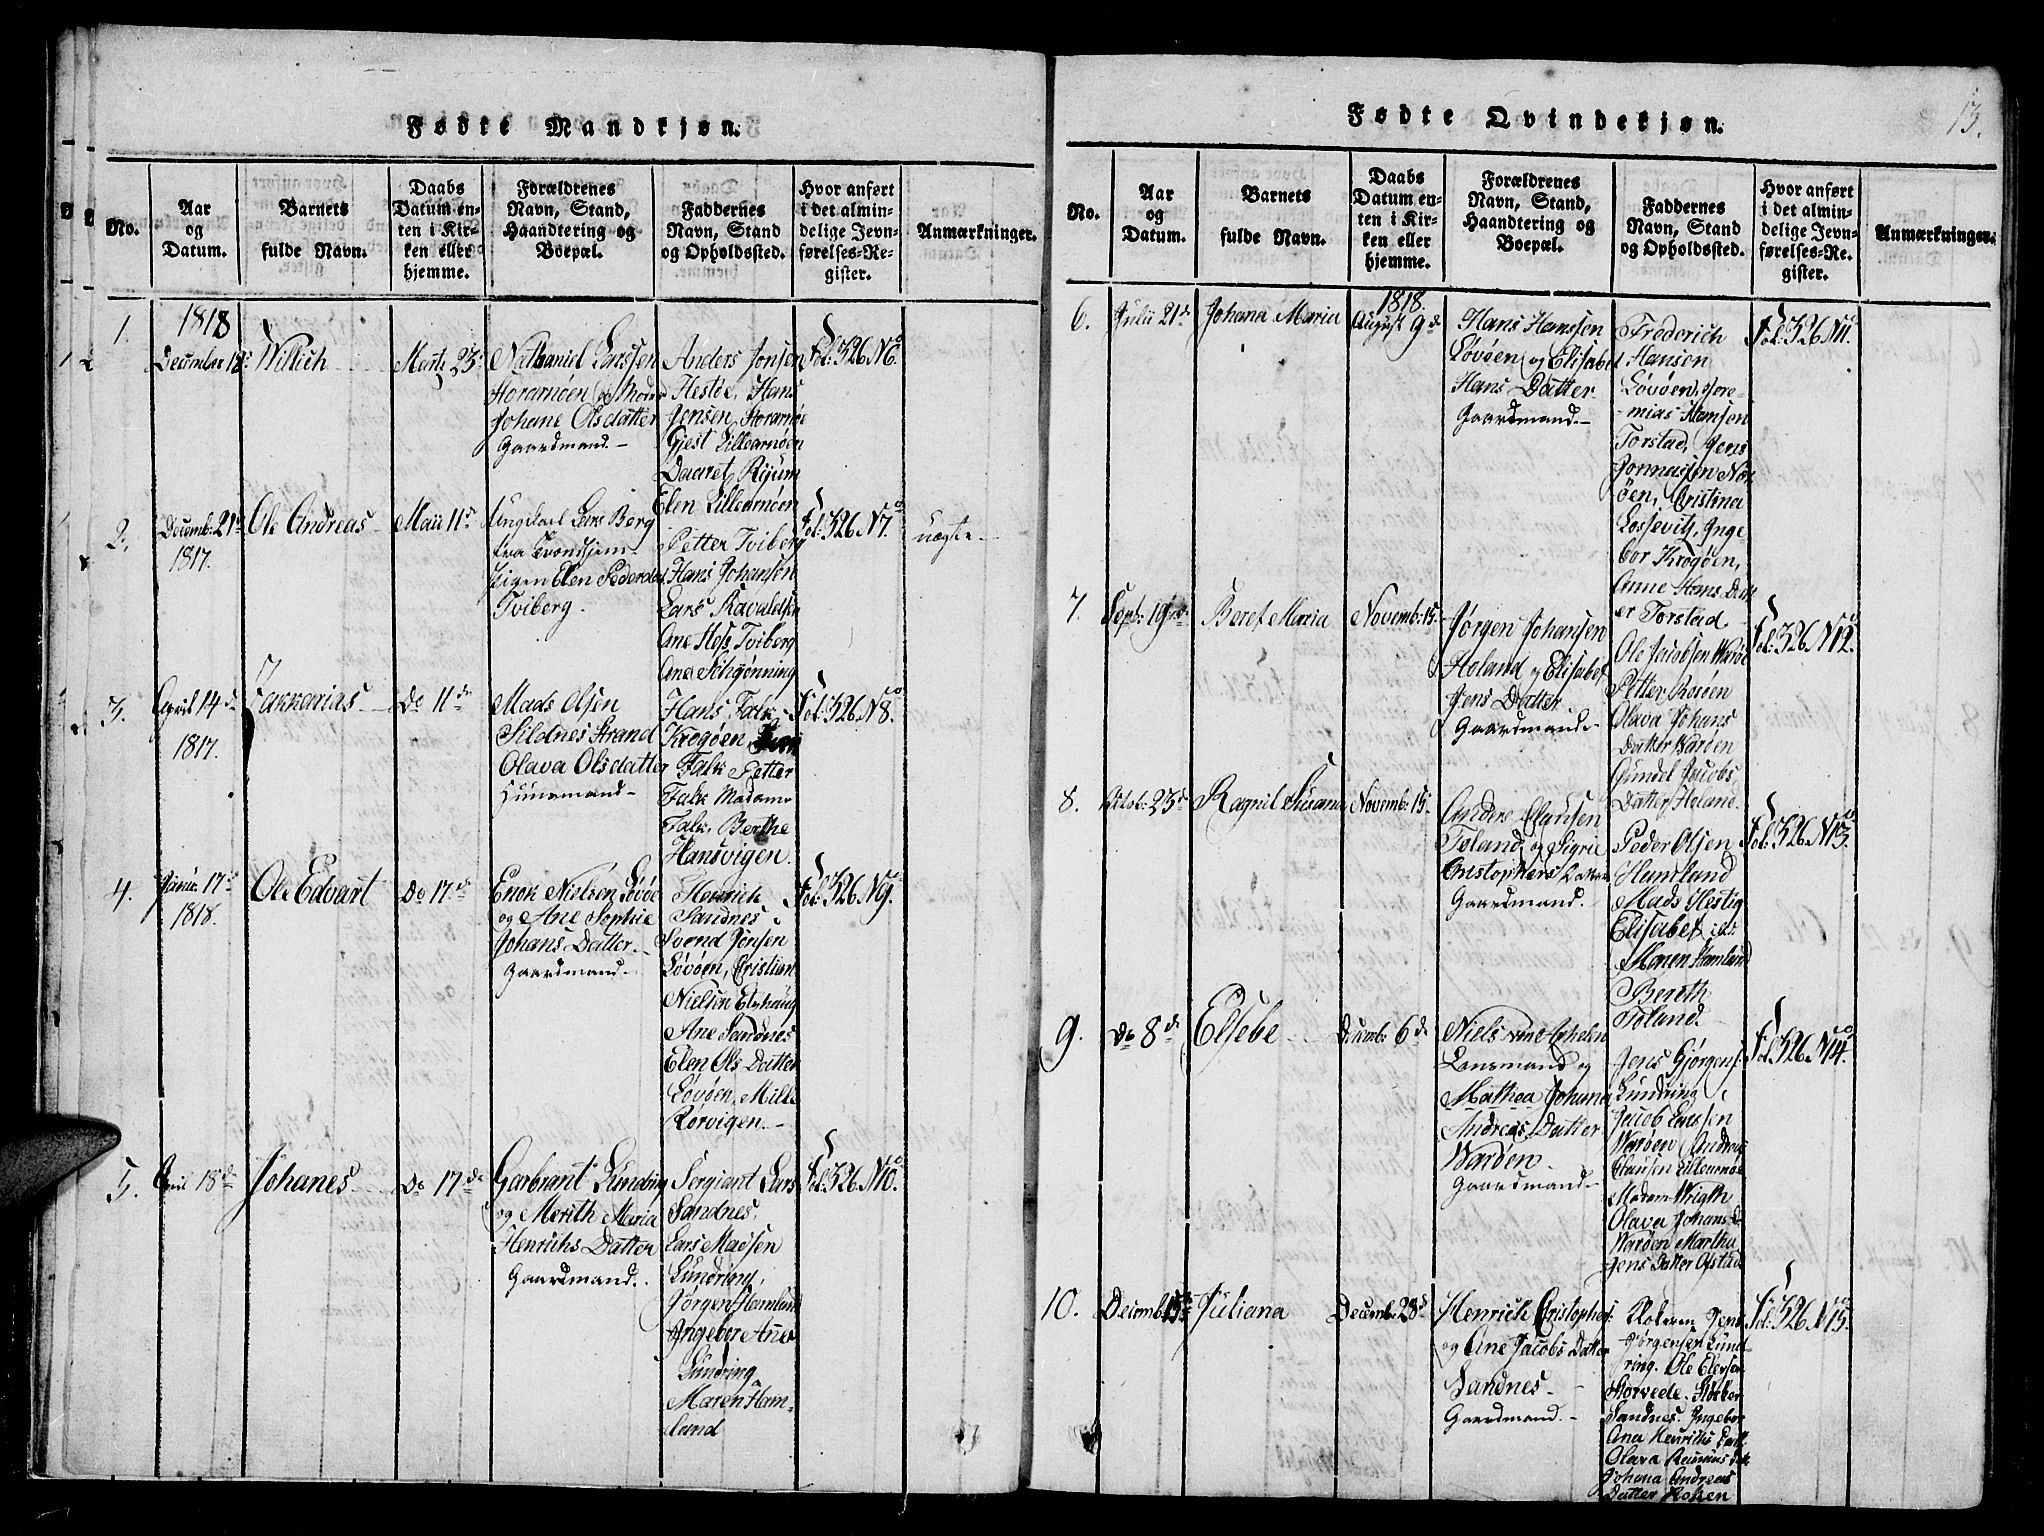 Fødte Mandkjøn.
No.
Aar
og
Datum.
Barnets
fulde Navn.
Daabs
Datum en-
ten i Kir-
ken eller
hjemme.
Forældrenes
Navn, Stand,
Haandtering og
Boepæl.
Faddernes
Navn, Stand
og Opholdssted.
Hvor anført
i det almin-
delige Jevn-
førelses-Re-
gister.
Anmærkninger.
1.
1818
December 18
Willich
Marti 23
Nathaniel Larssen
Horarnøen og Moder
Johane Olsdatter
Gaardmand.
Anders Jonsen
Hestøe, Hans
Jensen, Horarnøe
Gjest Lillearnøen
Daaret Ryum
Elen Lillearnøen
Fol: 326 No 6.
2.
Decemb: 21
1817.
Ole Andreas
Maii 11
Lars Berg
fra Trondhjem
Pigen Elen Pedersd
Tviberg.
Petter Tviberg
Hans Johansen
Lars Ravaldsen
Ane Hofs, Tviberg
Ane Schjønning
Fol: 326 No 7.
uægte
3.
April 14 d
1817.
Zakkarias
Do 11 de
Mads Olsen
Sildnes Strand
Olava Olsdatter
Huusmand
Hans Falk
Krogøen
Falk Petter
Falk Madame
Falk, Berthe
Hansvigen.
Fol: 326 No 8.
4.
Janu: 17
1818.
Ole Edvart
Do 17 d
Enok Nielsen Løvøe
og Ane Sophie
Johans Datter.
Gaardmand
Henrich
Sandnes,
Svend Jonsen
Løvøen, Cristian
Nielsen Elshaug
Ane Sandnes
Elen Ols Datter
Løvøen, Milts
Rørvigen.
Fol: 326 No 9.
5.
April 18 d
Johanes
Do 17 de
Garbrant Lundring
og Merith Maria
Henrichs Datter
Gaardmand.
Sergiant Lars
Sandnes,
Lars Madsen
Lundring,
Jørgen Hamlund
Ingebor Aner
Lundring
Maren Ham-
lund
Fol: 326 No 10.
Fødte Qvindekjøn.
13.
No.
Aar
og
Datum.
Barnets
fulde Navn.
Daabs
Datum en-
ten i Kir-
ken eller
hjemme.
Forældrenes
Navn, Stand,
Haandtering og
Boepæl.
Faddernes
Navn, Stand
og Opholdssted.
Hvor anført
i det almin-
delige Jevn-
førelses-Re-
gister.
Anmærkninger.
6.
Julii 21 d
Johana Maria
1818.
August 9 d
Hans Hanssen
Løvøen og Elisabet
Hans Datter
Gaardmand.
Frederich
Hansen
Løvøen, Jere-
mias Hansen
Torstad, Jens
Jonnassen Nor
øen, Cristina
Lossevits, Inge
bor Krogøen,
Anne Hans Datt
er Torstad.
Fol: 326 No 11.
7.
Sept: 19 de
Beret Maria
Novemb: 15
Jørgen Johansen
Holand og Elisabet
Jens Datter
Gaardmand
Ole Jacobsen Warøe
Petter Rosøen
Olava Johans
Datter Warøen
Gundel Jacobs
Datter Holand.
Fol: 326 No 12.
8.
Octob: 23 d
Ragnil Susana
Novemb: 15
Anders Clausen
Toland, og Sigrie
Cristophers Datter
Gaardmand.
Peder Olsen
Hamlund
Mads Hestig
Elisabet
Maren Hamlund
Bereth
Toland.
Fol: 326 No 13.
9.
Do 8 de
Elsebe
Decemb: 6 d
Niels von Aphelen
Lensmand og
Mathea Johana
Andreas Datter
Warøen
Gaardmand
Jens Gjørgens
Lundring,
Jacob Larssen
Warøen Andreas
Clausen Lillearnøe
Madam Wrigth
Olava Johans D
Warøen Martha
Jens Datter Ofstad
Fol: 326 No 14.
10.
Decemb: 15
Juliana
Decemb: 28 d
Henrich Cristophers:
og Ane Jacobs Datter
Sandnes
Gaardmand.
Jens
Jørgensen Lund-
ring. Ole Elersen
Horvede.
Sandnes. Ingebor
Ana Henrichs Datt
Olava
Johana Andreas
Datter
Fol: 326 No 15.